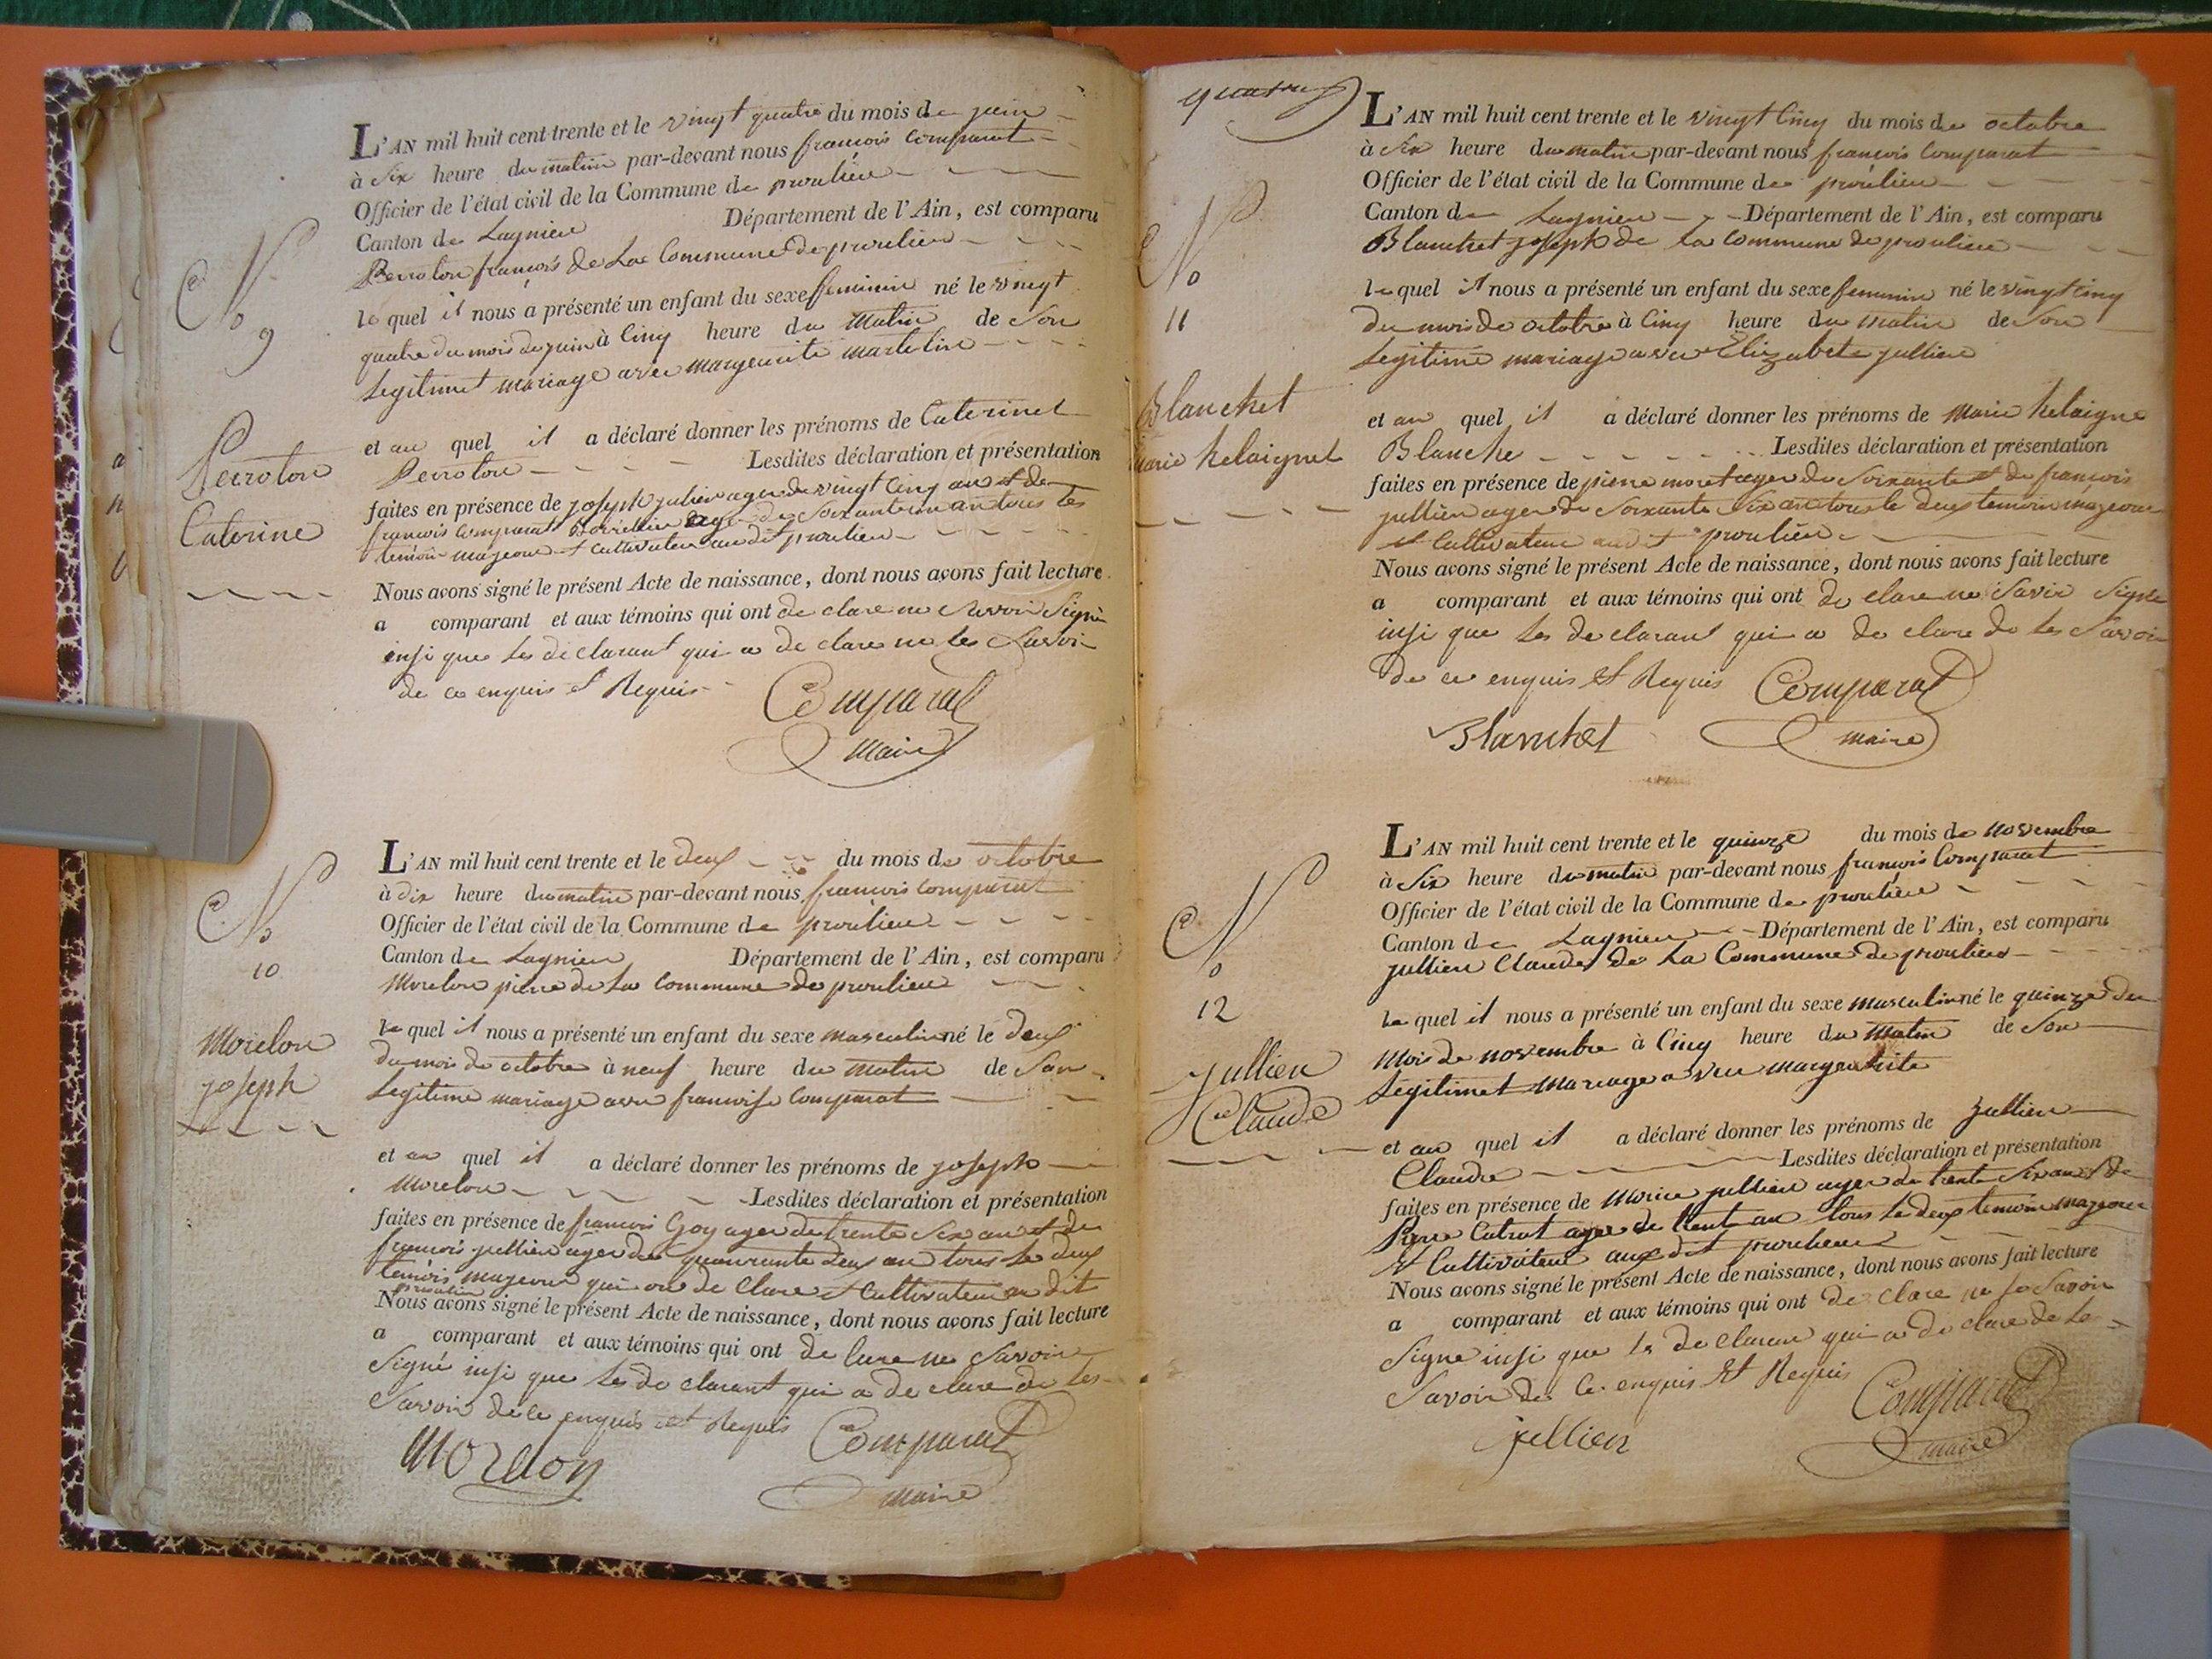 L'AN mil huit cent trente et le vingt quatre du mois de juin
à Six heure du matin par-devant nous françois Comparat
Officier de l'état civil de la Commune de proulieu
Canton de Lagnieu Département de l'Ain, est comparu
Perroton françois de La Commune de proulieu
le quel il nous a présenté un enfant du sexe feminin né le vingt
quatre du mois de juin à Cinq heure du Matin de Son
Legitimet mariage avec margeurite
et au quel il a déclaré donner les prénoms de Caterinet
Perroton Lesdites déclaration et présentation
faites en présence de joseph julien ager de vingt Cinq an et de
françois Comparat ager de Soixante un an tous les
temoin majeour et Cultivateur au dit proulieu
Nous avons signé le présent Acte de naissance, dont nous avons fait lecture
a comparant et aux témoins qui ont de clare ne Savoir Signé
insi que Les de clarant qui a de clare ne les Savoir
de ce enquis et Requis
Comparat
Maire
No
9
Perroton
Caterine
L'AN mil huit cent trente et le deux du mois de octobre
à dix heure du matin par-devant nous françois Comparat
Officier de l'état civil de la Commune de proulieu
Canton de Lagnieu Département de l'Ain, est comparu
Morelon piere de La Commune de proulieu
le quel il nous a présenté un enfant du sexe masculin né le deux
du mois de octobre à neuf heure du Matin de Son
Legitime mariage avec francoise Comparat
et au quel il a déclaré donner les prénoms de joseph
Morelon Lesdites déclaration et présentation
faites en présence de francois Goy ager de trente Six an et de
francois jullien ager de quaurante deux an tous le deux
temoin majeour qui on de Clare et Cultivateur au dit
proulieu
Nous avons signé le présent Acte de naissance, dont nous avons fait lecture
a comparant et aux témoins qui ont de lare ne Savoir
Signé insi que Les de clarant qui a de clare de les
Savoir de ce enquis et Requis
Morelon Comparat
maire
No
10
Morelon
joseph
quatre
L'AN mil huit cent trente et le vingt Cinq du mois de octobre
à Six heure du matin par-devant nous françois Comparat
Officier de l'état civil de la Commune de proulieu
Canton de Lagnieu Département de l'Ain, est comparu
Blanchet joseph de La Commune de proulieu
le quel il nous a présenté un enfant du sexe feminin né le vingt Cinq
du mois de octobre à Cinq heure du matin de Son
Legitime mariage avec Elizabete jullien
et au quel il a déclaré donner les prénoms de Marie helaigne
Blanche Lesdites déclaration et présentation
faites en présence de piere moret ager de Soixante et de francois
jullien ager de Soixante Six an tous le deux temoin majeour
et Cultivateur au dit proulieu
Nous avons signé le présent Acte de naissance, dont nous avons fait lecture
a comparant et aux témoins qui ont de clare ne Savoir Signe
insi que Les de clarant qui a de clare de les Savoir
de ce enquis et Requis Comparat
Blanchet maire
No
11
Blanchet
Marie helaignet
L'AN mil huit cent trente et le quinze du mois de novembre
à Six heure du matin par-devant nous francois Comparat
Officier de l'état civil de la Commune de proulieu
Canton de Lagnieu Département de l'Ain, est comparu
jullien Claude de La Commune de proulieu
le quel il nous a présenté un enfant du sexe masculin né le quinze du
Mois de novembre à Cinq heure du Matin de Son
Legitimet Mariage avec margeurite
et au quel il a déclaré donner les prénoms de jullien
Claude Lesdites déclaration et présentation
faites en présence de Morice jullien ager de trente Six an et de
Piere ager de trente an tous le deux temoin majeour
et Cultivateur aux dit proulieu
Nous avons signé le présent Acte de naissance, dont nous avons fait lecture
a comparant et aux témoins qui ont de clare ne se Savoir
Signe insi que le de clarant qui a de clare de le
Savoir de Ce enquis et Requis Comparat
jullien maire
No
12
Jullien
Claude